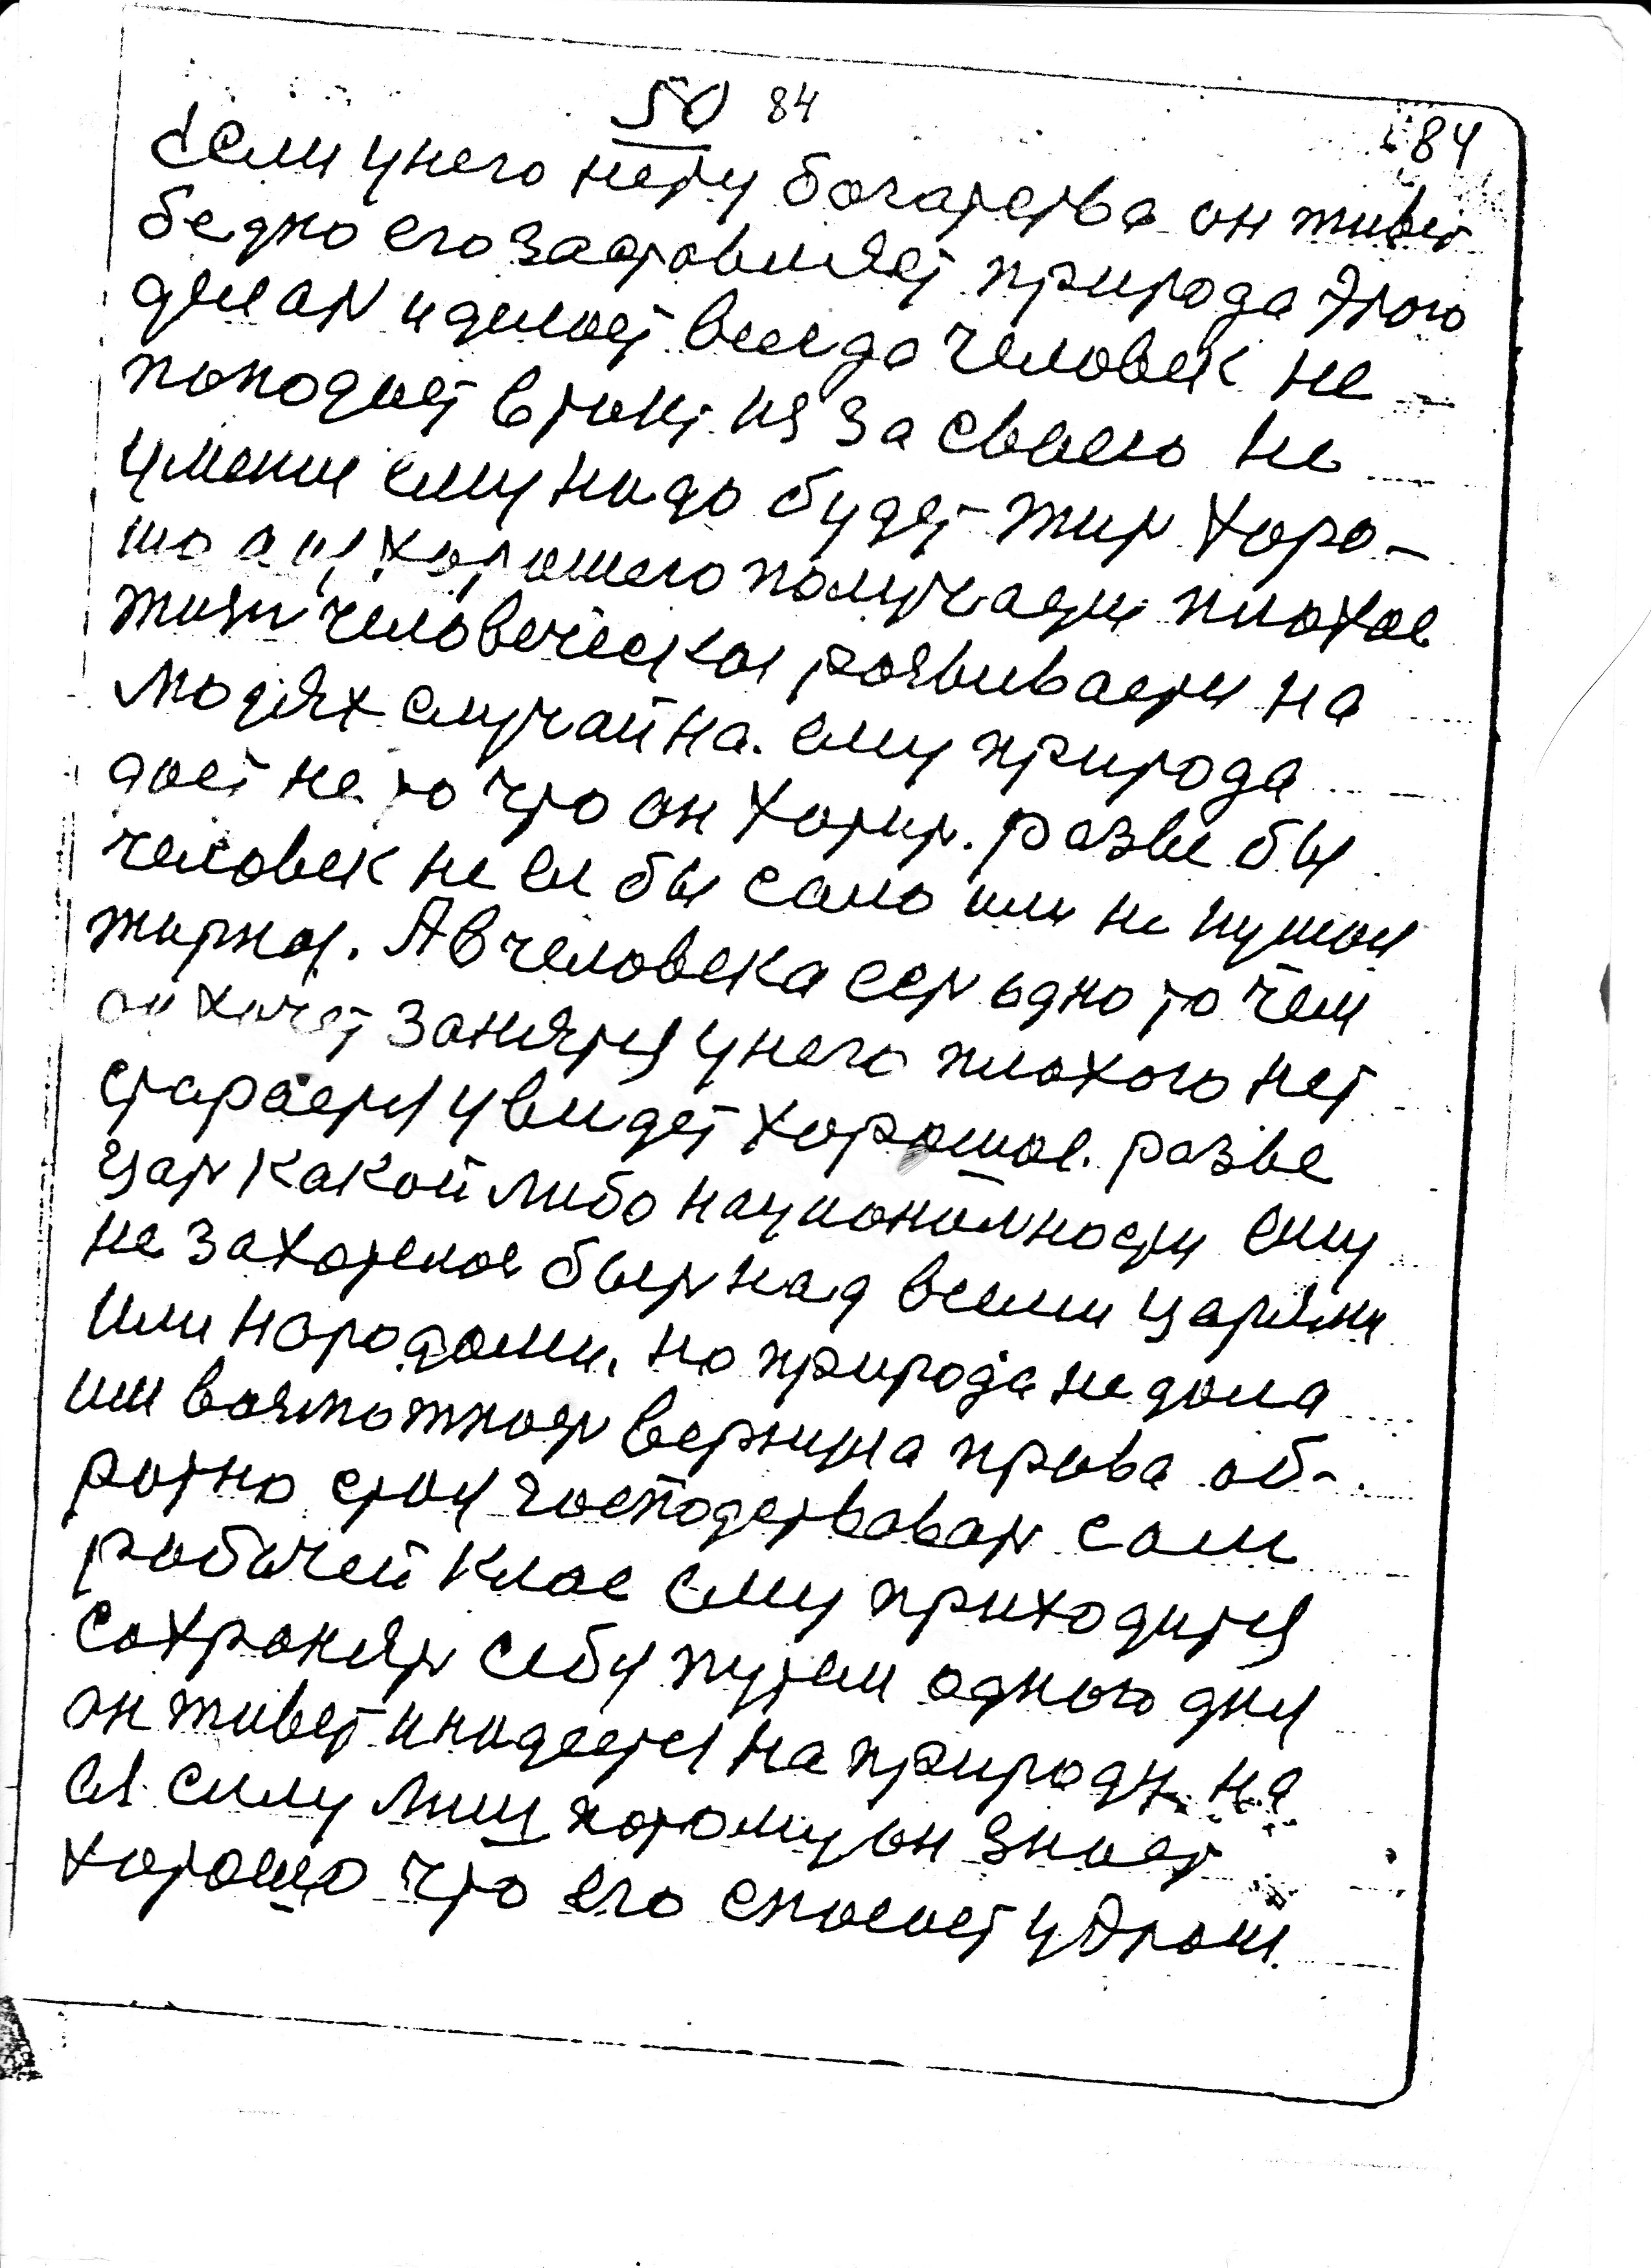 50 84
84
Если у него нету богатства он живет
бедно его заставляет природа этого
делать и делает всегда человек не
поподает в точк. из за своего не
умения ему надо будет жить хоро-
шо а из хорошего получается плохое
жизнь человеческая розвивается на
людях случайна. ему природа
дает не то что он хотит. разве бы
человек не ел бы сало или не кушал
жирное. А в человека есть одно то чем
он хочет занятся у него плохого нет
старается увидет хорошое. разве
царь какой либо национальности ему
не захотелос быть над всеми царями
или народами. но природа не дала
им возможность вернула права об-
ротно стал господствовать сам
робочей класс ему приходится
сохронять себя путем одного дня
он живет и надеется на природу на
ея силу лиш потому он знает
хорошо что его спасает у этом.